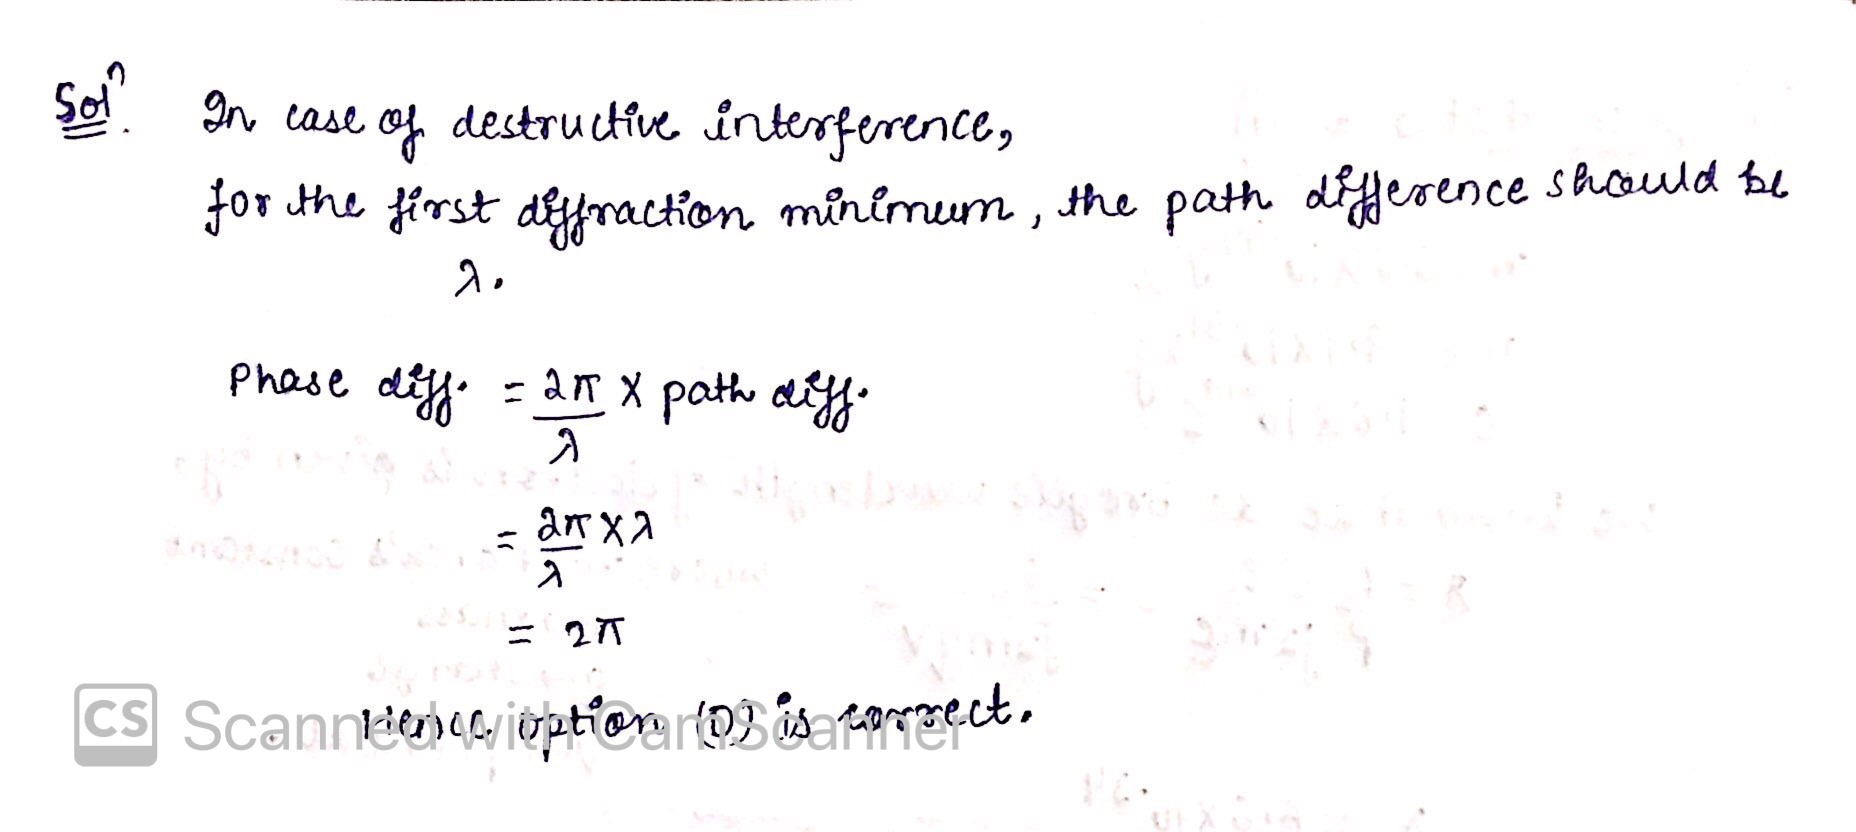 Solⁿ. In case of destructive interference,
for the first diffraction minimum, the path difference should be
λ.
Phase diff. = 2π/λ X path diff.
= 2π/λ X λ
= 2π
Hence option (D) is correct.
CS Scanned with CamScanner